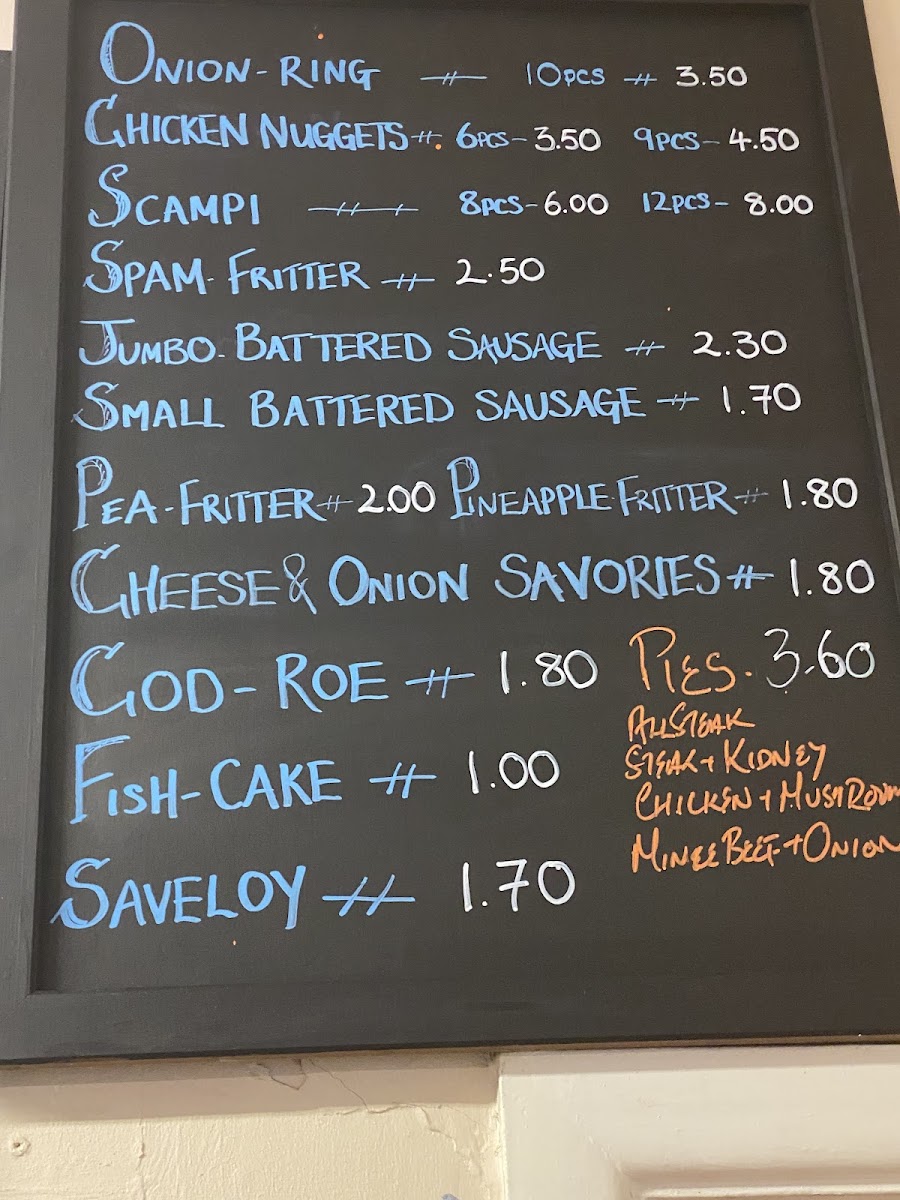 ONION-RING 10PCS 3.50
CHICKEN NUGGETS 6PCS-3.50 9PCS-4.50
SCAMPI 8PCS-6.00 12PCS-8.00
SPAM-FRITTER 2.50
JUMBO-BATTERED SAUSAGE 2.30
SMALL BATTERED SAUSAGE 1.70
PEA-FRITTER 2.00 PINEAPPLE-FRITTER 1.80
CHEESE & ONION SAVORIES 1.80
COD-ROE 1.80
PIES. 3.60
ALL STEAK
STEAK + KIDNEY
CHICKEN + MUSHROOM
MINCE BEEF + ONION
FISH-CAKE 1.00
SAVELOY 1.70